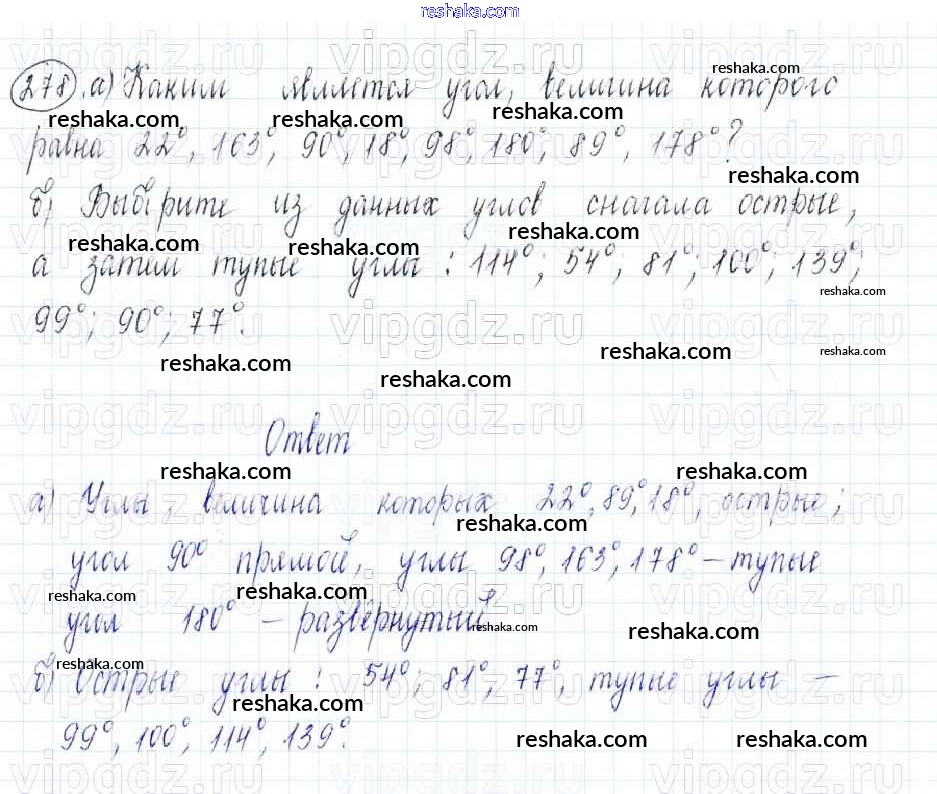 reshaka.com
278 а) Каким является угол, величина которого
равна 22°, 163°, 90°, 18°, 98°, 180°, 89°, 178°?
б) Выберите из данных углов сначала острые,
а затем тупые углы : 114°; 54°; 81°; 100°; 139°;
99°; 90°; 77°.
Ответ
а) Углы, величина которых 22°, 89°, 18°, острые;
угол 90° прямой, углы 98°, 163°, 178° – тупые
угол 180° – развёрнутый.
б) Острые углы : 54°; 81°; 77°, тупые углы –
99°, 100°, 114°, 139°.